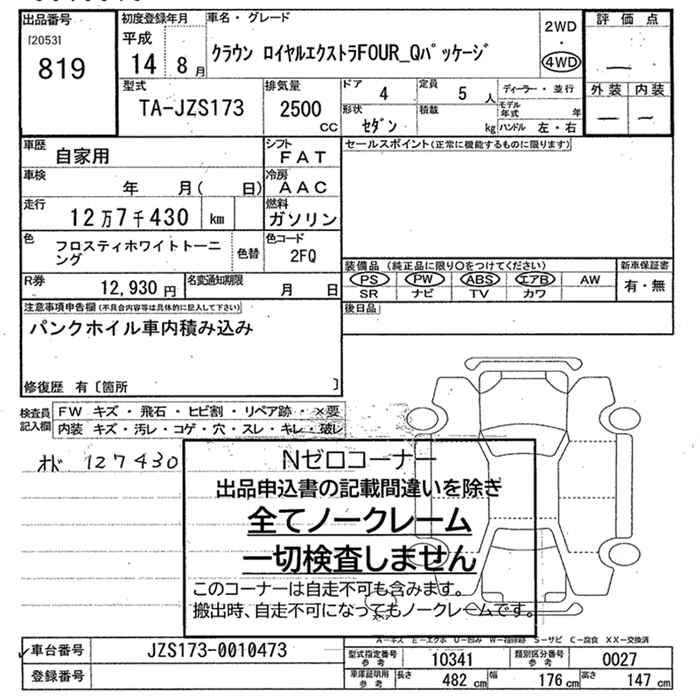 出品番号
[2053]
819
初度登録年月
平成
14 8 月
車名・グレード
クラウン ロイヤルエクストラFOUR_Qパッケージ
2WD
・
4WD
評価点
—
外装 内装
— —
型式
TA-JZS173
排気量
2500
CC
ドア
4
定員
5 人
ディーラー・並行
モデル年式 年
形状
セダン
積載
kg
ハンドル 左・右
車歴
自家用
シフト
FAT
車検
年 月( 日)
冷房
AAC
走行
12万7千430 km
燃料
ガソリン
色
フロスティホワイトトーニング
色替
色コード
2FQ
R券
12,930 円
名変通知期限
月 日
セールスポイント(正常に機能するものに限ります)
装備品(純正品に限り○をつけてください)
PS PW ABS エアB AW
SR ナビ TV カワ
新車保証書
有・無
後日品
注意事項申告欄(不具合内容等は具体的に記入して下さい)
パンクホイル車内積み込み
修復歴 有〔箇所 〕
検査員記入欄
FW キズ・飛石・ヒビ割・リペア跡・×要
内装 キズ・汚レ・コゲ・穴・スレ・キレ・破レ
オド 127430
Nゼロコーナー
出品申込書の記載間違いを除き
全てノークレーム
一切検査しません
このコーナーは自走不可も含みます。
搬出時、自走不可になってもノークレームです。
A-キズ E-エクボ U-凹み W-補修跡 S-サビ C-腐食 XX-交換済
車台番号
JZS173-0010473
登録番号
型式指定番号
参考
10341
類別区分番号
参考
0027
車庫証明用
参考
長さ
482 cm
幅
176 cm
高さ
147 cm